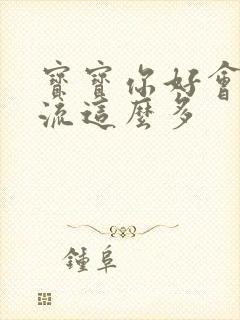 寶寶你好會
流這麼多
鍾阜